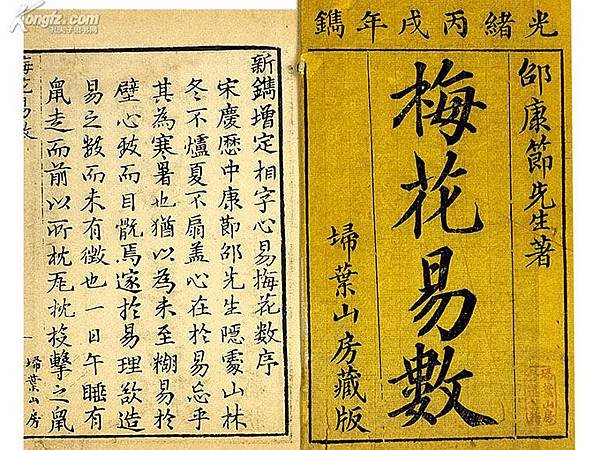 光緒丙戌年鐫
邵康節先生著
梅花易數
埽葉山房藏版
新鐫增定相字心易梅花數序
宋慶歷中康節邵先生隱處山林
冬不爐夏不扇蓋心在於易忘乎
其為寒暑也猶以為未至糊易於
壁心致而目翫焉邃於易理欲造
易之數而未有徵也一日午睡有
鼠走而前以所枕瓦枕投擊之鼠
梅花易數
埽葉山房
Kongfz.com